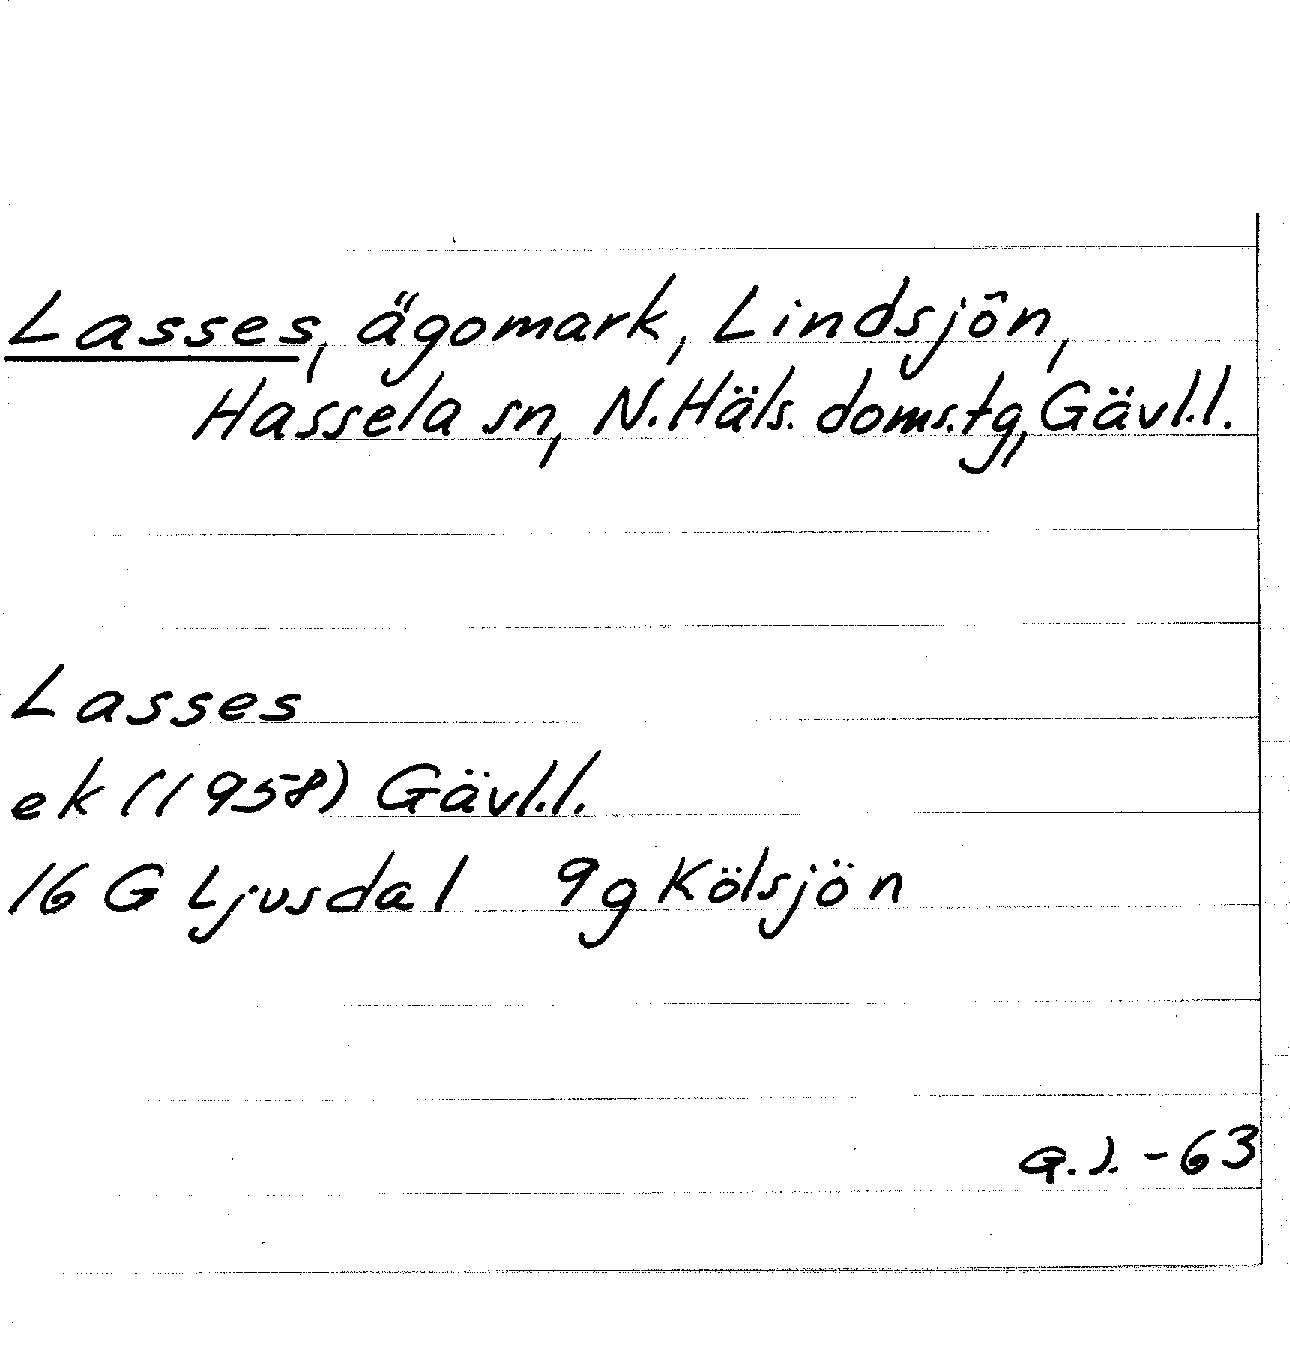 Lasses, ägomark, Lindsjön,
Hassela sn, N. Häls. doms.tg, Gävl.l.
Lasses
ek (1958) Gävl.l.
16 G Ljusdal 9g Kölsjön
G.J. -63